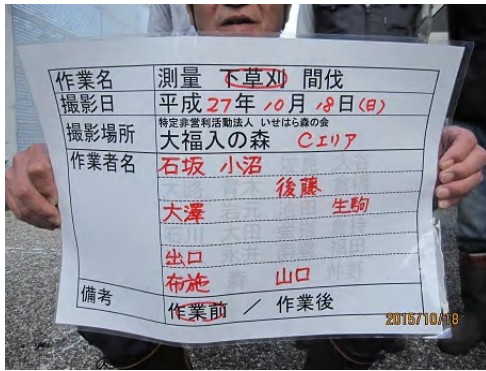 作業名 測量 下草刈 間伐
撮影日 平成27年10月18日(日)
特定非営利活動法人 いせはら森の会
撮影場所 大福入の森 Cエリア
作業者名 石坂 小沼
後藤
大澤 生駒
出口
布施 森 山口 仲野
備考 作業前 / 作業後
2015/10/18